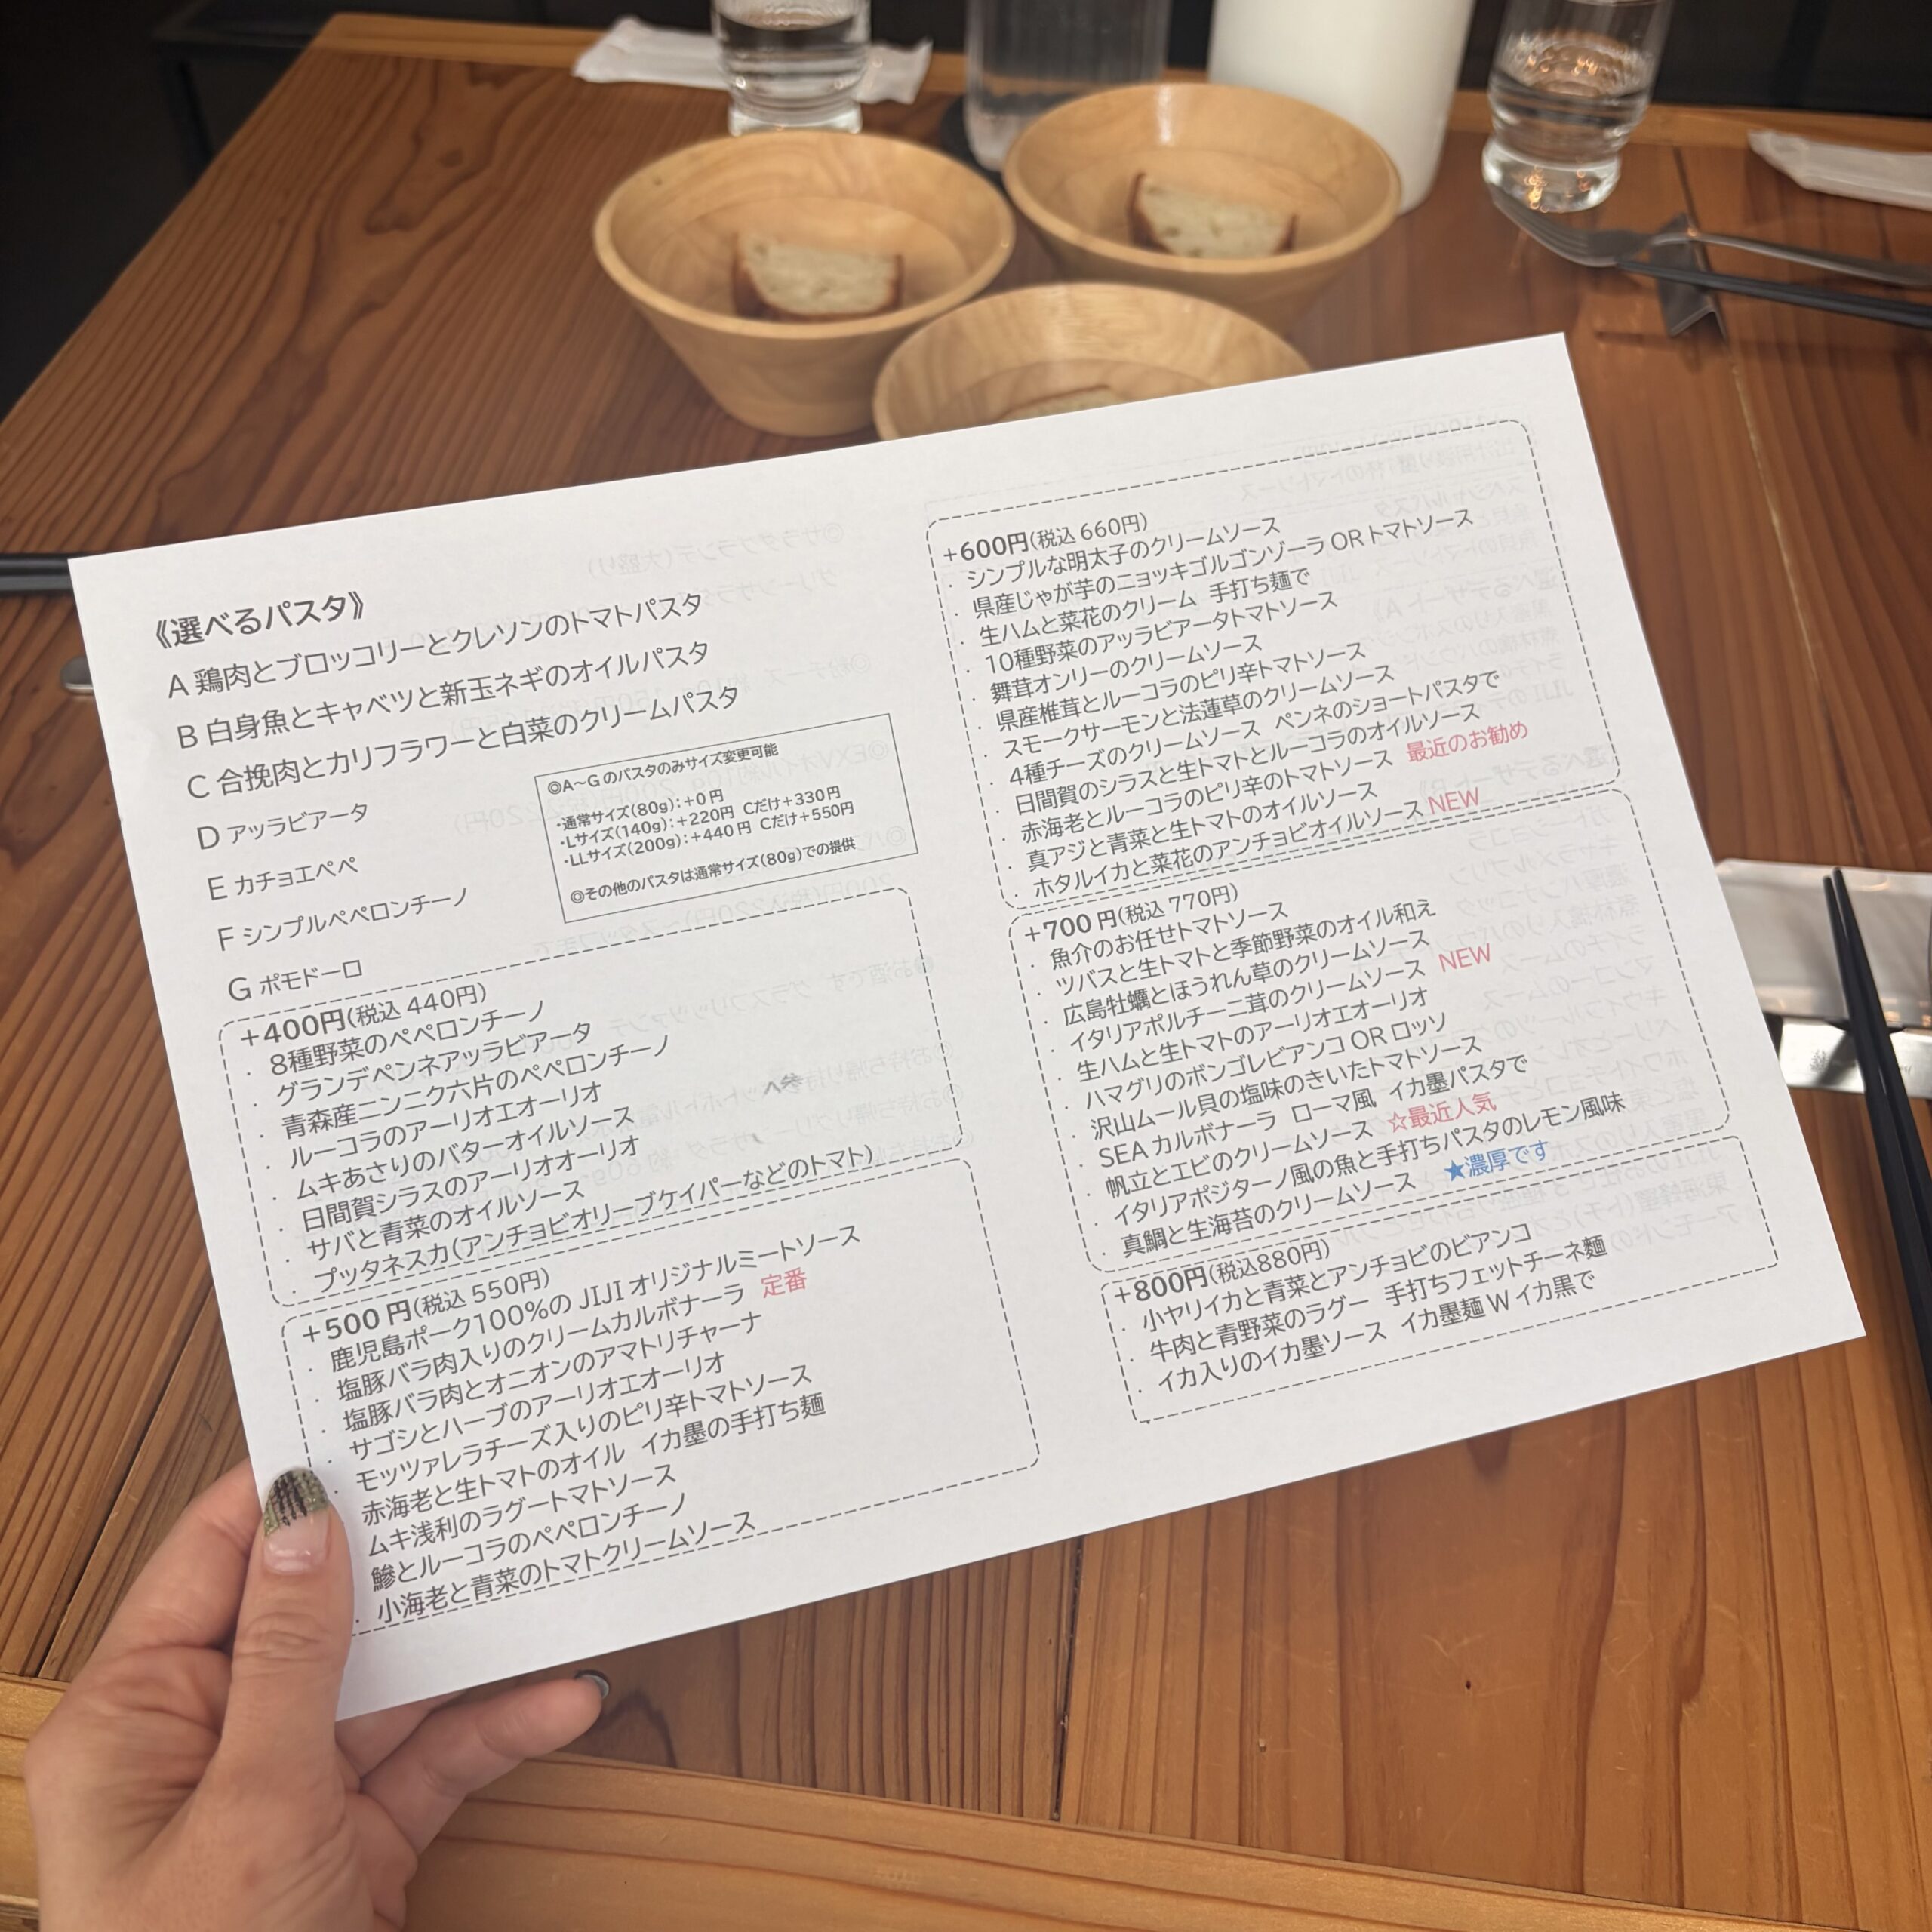 《選べるパスタ》
A 鶏肉とブロッコリーとクレソンのトマトパスタ
B 白身魚とキャベツと新玉ネギのオイルパスタ
C 合挽肉とカリフラワーと白菜のクリームパスタ
D アッラビアータ
E カチョエペペ
F シンプルペペロンチーノ
G ポモドーロ
◎A～G のパスタのみサイズ変更可能
・通常サイズ(80g):+0 円
・Lサイズ(140g):+220円 Cだけ+330円
・LLサイズ(200g):+440 円 Cだけ+550円
◎その他のパスタは通常サイズ(80g)での提供
+400円(税込 440円)
・ 8種野菜のペペロンチーノ
・ グランデペンネアッラビアータ
・ 青森産ニンニク六片のペペロンチーノ
・ ルーコラのアーリオエオーリオ
・ ムキあさりのバターオイルソース
・ 日間賀シラスのアーリオオーリオ
・ サバと青菜のオイルソース
・ プッタネスカ(アンチョビオリーブケイパーなどのトマト)
+500 円(税込 550円)
・ 鹿児島ポーク100%の JIJI オリジナルミートソース
・ 塩豚バラ肉入りのクリームカルボナーラ 定番
・ 塩豚バラ肉とオニオンのアマトリチャーナ
・ サゴシとハーブのアーリオエオーリオ
・ モッツァレラチーズ入りのピリ辛トマトソース
赤海老と生トマトのオイル イカ墨の手打ち麺
ムキ浅利のラグートマトソース
鯵とルーコラのペペロンチーノ
・ 小海老と青菜のトマトクリームソース
+600円(税込 660円)
・ シンプルな明太子のクリームソース
・ 県産じゃが芋のニョッキゴルゴンゾーラ OR トマトソース
・ 生ハムと菜花のクリーム 手打ち麺で
・ 10種野菜のアッラビアータトマトソース
・ 舞茸オンリーのクリームソース
・ 県産椎茸とルーコラのピリ辛トマトソース
・ スモークサーモンと法蓮草のクリームソース
・ 4種チーズのクリームソース ペンネのショートパスタで
・ 日間賀のシラスと生トマトとルーコラのオイルソース
・ 赤海老とルーコラのピリ辛のトマトソース 最近のお勧め
・ 真アジと青菜と生トマトのオイルソース
・ ホタルイカと菜花のアンチョビオイルソース NEW
+700 円(税込 770円)
・ 魚介のお任せトマトソース
・ ツバスと生トマトと季節野菜のオイル和え
・ 広島牡蠣とほうれん草のクリームソース
・ イタリアポルチーニ茸のクリームソース NEW
・ 生ハムと生トマトのアーリオエオーリオ
・ ハマグリのボンゴレビアンコ OR ロッソ
・ 沢山ムール貝の塩味のきいたトマトソース
・ SEA カルボナーラ ローマ風 イカ墨パスタで
・ 帆立とエビのクリームソース ☆最近人気
・ イタリアポジターノ風の魚と手打ちパスタのレモン風味
・ 真鯛と生海苔のクリームソース ★濃厚です
+800円(税込880円)
・ 小ヤリイカと青菜とアンチョビのビアンコ
・ 牛肉と青野菜のラグー 手打ちフェットチーネ麺
・ イカ入りのイカ墨ソース イカ墨麺 W イカ黒で